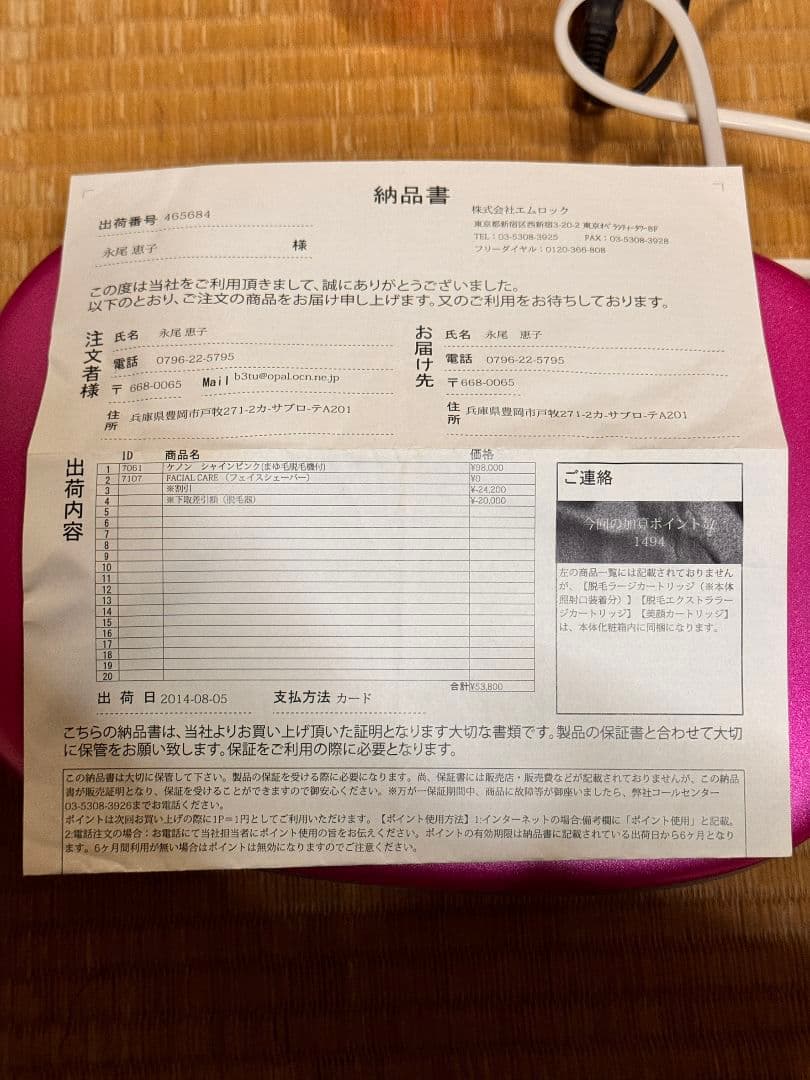 納品書
出荷番号 465684
永尾 恵子 様
株式会社エムロック
東京都新宿区西新宿3-20-2 東京オペラシティータワー8F
TEL:03-5308-3925 FAX:03-5308-3928
フリーダイヤル:0120-366-808
この度は当社をご利用頂きまして、誠にありがとうございました。
以下のとおり、ご注文の商品をお届け申し上げます。又のご利用をお待ちしております。
注文者様
氏名 永尾 恵子
電話 0796-22-5795
〒 668-0065 Mail b3tu@opal.ocn.ne.jp
住所 兵庫県豊岡市戸牧271-2カ-サプロ-テA201
お届け先
氏名 永尾 恵子
電話 0796-22-5795
〒 668-0065
住所 兵庫県豊岡市戸牧271-2カ-サプロ-テA201
出荷内容
ID 商品名 価格
1 7061 ケノン シャインピンク(まゆ毛脱毛機付) ¥98,000
2 7107 FACIAL CARE (フェイスシェーバー) ¥0
3 ※割引 ¥-24,200
4 ※下取差引額(脱毛器) ¥-20,000
5
6
7
8
9
10
11
12
13
14
15
16
17
18
19
20
合計 ¥53,800
ご連絡
今回の加算ポイントは?
1494
左の商品一覧には記載されておりません
が、【脱毛ラージカートリッジ(※本体
照射口装着分)】【脱毛エクストララー
ジカートリッジ】【美顔カートリッジ】
は、本体化粧箱内に同梱になります。
出荷日 2014-08-05 支払方法 カード
こちらの納品書は、当社よりお買い上げ頂いた証明となります大切な書類です。製品の保証書と合わせて大切
に保管をお願い致します。保証をご利用の際に必要となります。
この納品書は大切に保管して下さい。製品の保証を受ける際に必要になります。尚、保証書には販売店・販売費などが記載されておりませんが、この納品
書が販売証明となり、保証を受けることができますので御安心ください。※万が一保証期間中、商品に故障等が御座いましたら、弊社コールセンター
03-5308-3926までお電話ください。
ポイントは次回お買い上げの際に1P=1円としてご利用いただけます。【ポイント使用方法】1:インターネットの場合:備考欄に「ポイント使用」と記載。
2:電話注文の場合:お電話にて当社担当者にポイント使用の旨をお伝えください。ポイントの有効期限は納品書に記載されている出荷日から6ヶ月となり
ます。6ヶ月間利用が無い場合はポイントは無効になりますのでご注意ください。